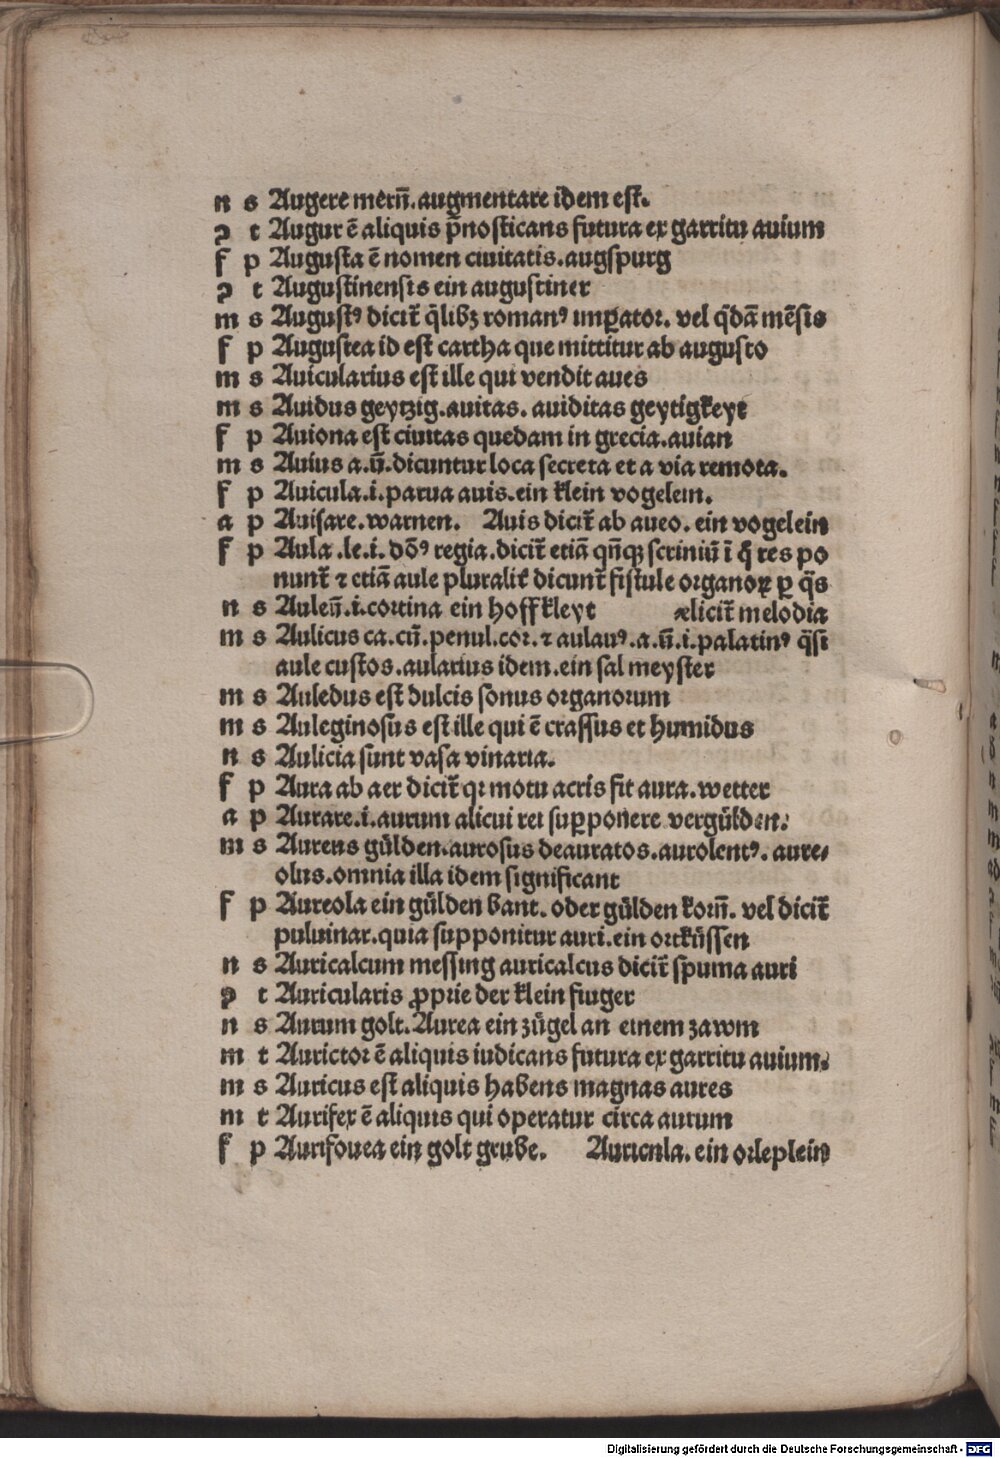 n s Augere merñ.augmentare idem est.
ꝯ t Augur ē aliquis p̄nosticans futura ex garritu auium
f p Augusta ē nomen ciuitatis.augspurg
ꝯ t Augustinensis ein augustiner
m s Augustꝰ dicit̃ q̄libꝫ romanꝰ imꝑator. vel q̄dā mēsis
f p Augustea id est cartha que mittitur ab augusto
m s Auicularius est ille qui vendit aues
m s Auidus geytzig.auitas. auiditas geytigkeyt
f p Auiona est ciuitas quedam in grecia.auian
m s Auius a.ū.dicuntur loca secreta et a via remota.
f p Auicula.i.parua auis.ein klein vogelein.
a p Auisare.warnen. Auis dicit̃ ab aueo. ein vogelein
f p Aula .le.i.dōꝰ regia.dicit̃ etiā qn̄qꝫ scriniū ī q̄ res po
nunt̃ ⁊ etiā aule pluralit̃ dicunt̃ fistule organoꝝ ꝑ q̄s
n s Auleū.i.cortina ein hoffkleyt elicit̃ melodia
m s Aulicus ca.cū.penul.cor.⁊ aulauꝰ.a.ū.i.palatinꝰ q̄si
aule custos.aularius idem.ein sal meyster
m s Auledus est dulcis sonus organorum
m s Auleginosus est ille qui ē crassus et humidus
n s Aulicia sunt vasa vinaria.
f p Aura ab aer dicit̃ qꝛ motu aeris fit aura.wetter
a p Aurare.i.aurum alicui rei supponere vergülden.
m s Aurens gülden.aurosus deauratos.aurolentꝰ. aure⸗
olus.omnia illa idem significant
f p Aureola ein gülden bant. oder gülden korn̄. vel dicit̃
puluinar.quia supponitur auri.ein ortküssen
n s Auricalcum messing auricalcus dicit̃ spuma auri
ꝯ t Auricularis ꝓprie der klein finger
n s Aurum golt.Aurea ein zügel an einem zawm
m t Aurictor ē aliquis iudicans futura ex garritu auium.
m s Auricus est aliquis habens magnas aures
m t Aurifex ē aliquis qui operatur circa aurum
f p Aurifouea ein golt grube. Auricula. ein orleplein
Digitalisierung gefördert durch die Deutsche Forschungsgemeinschaft - DFG